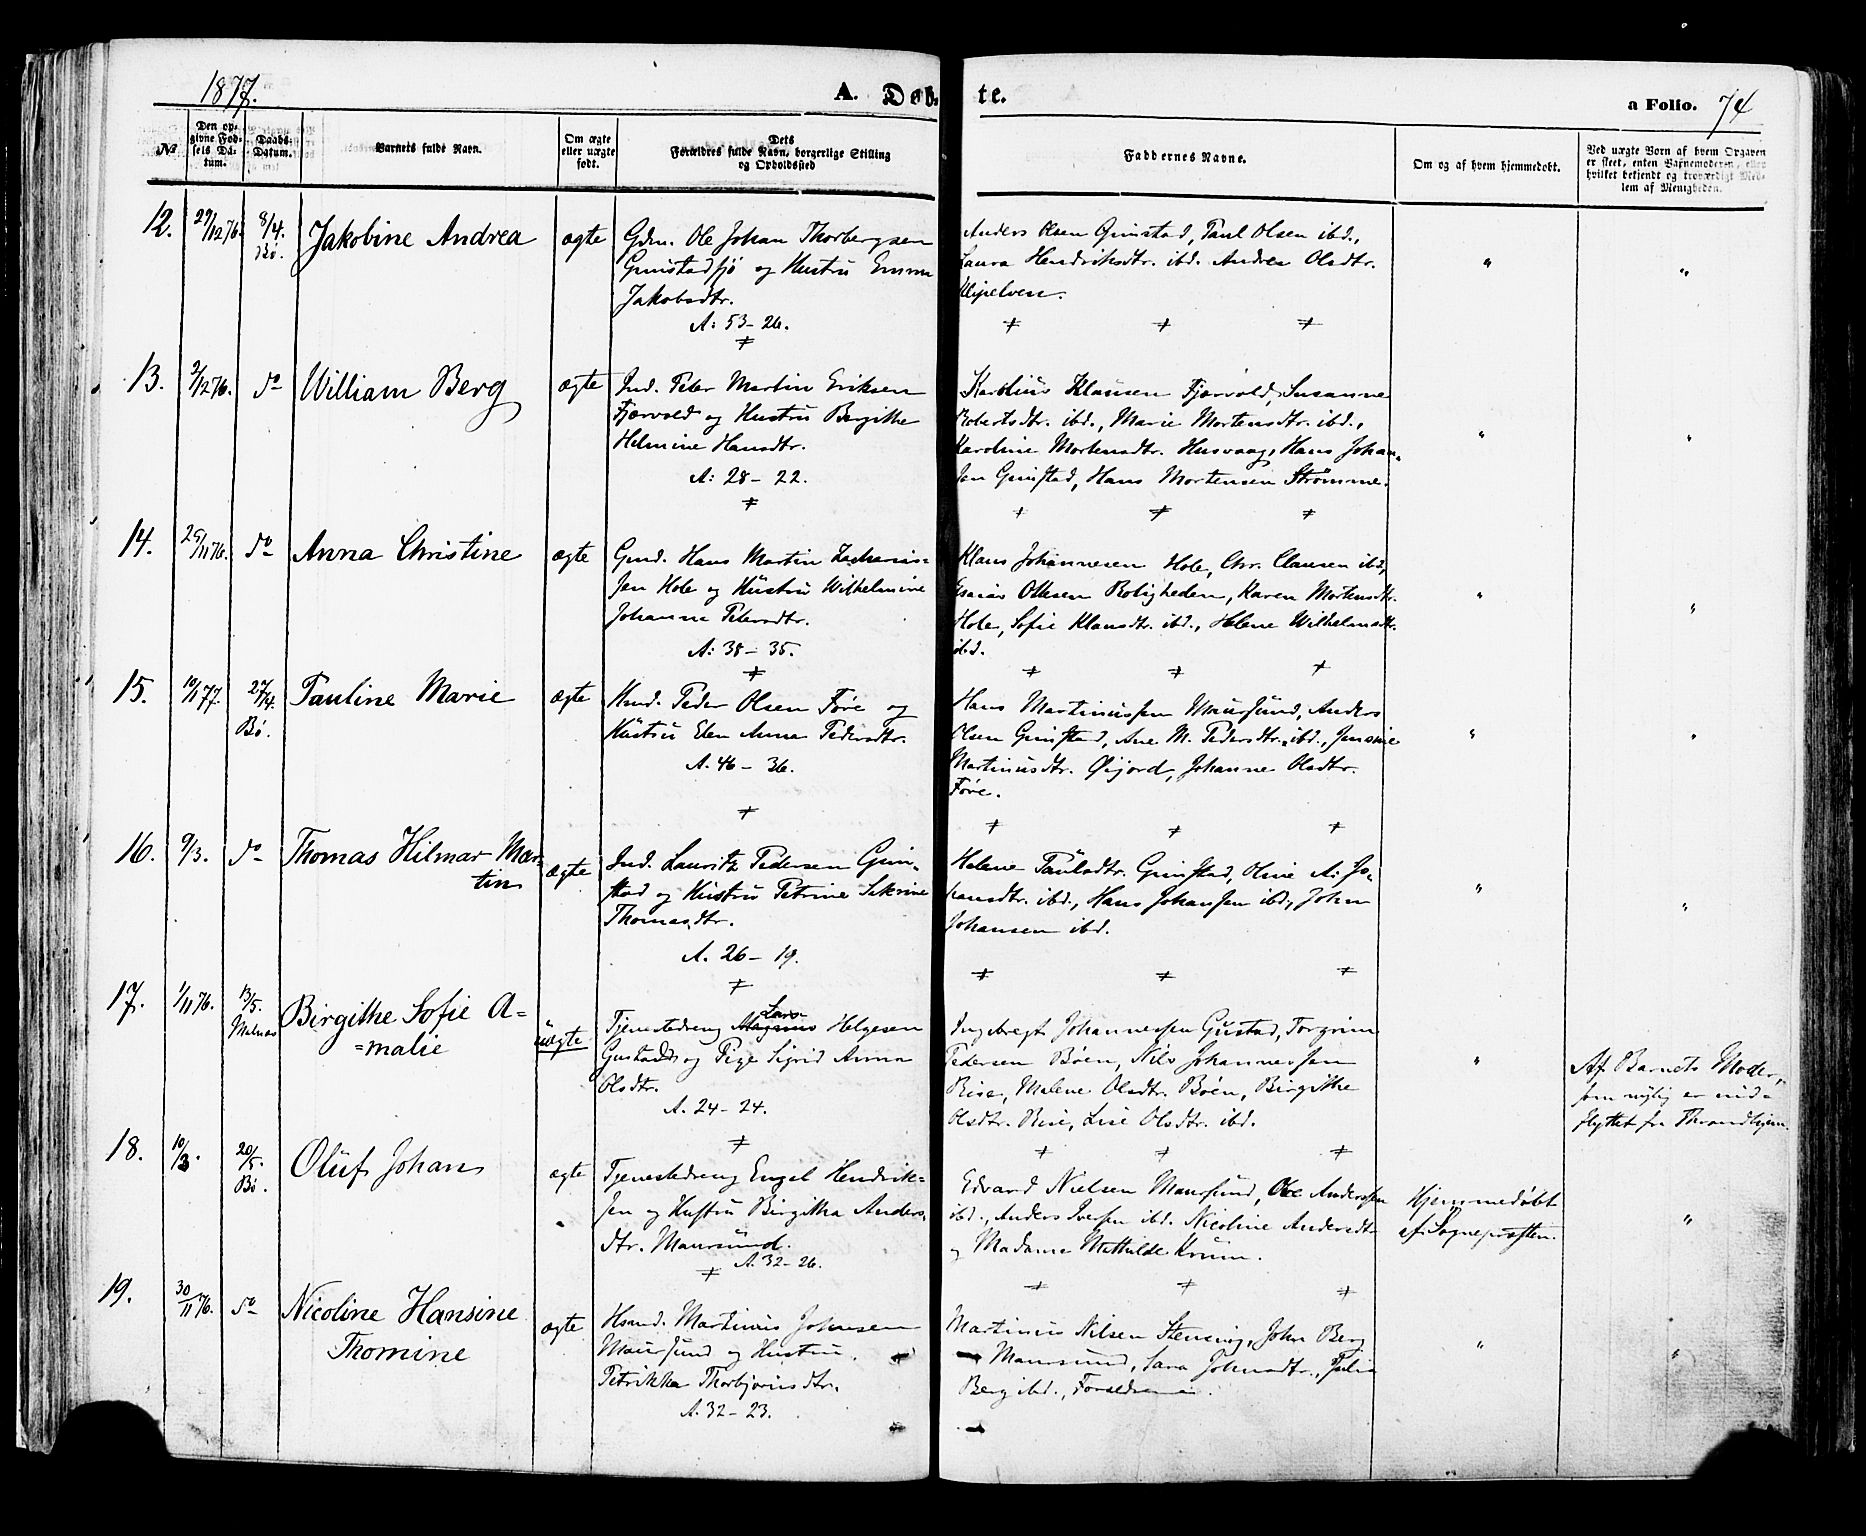 1877.
A. Døb-
te.
a Folio. 74
No
Den op-
givne Fød-
sels Da-
tum.
Daabs-
Datum.
Barnets fulde Navn.
Om ægte
eller uægte
født.
Dets
Forældres fulde Navn, borgerlige Stilling
og Opholdssted
Faddernes Navne.
Om og af hvem hjemmedøbt.
Ved uægte Børn af hvem Opgaven
er skeet, enten Barnemoderen, eller
hvilket bekjendt og troværdigt Med-
lem af Menigheden.
12.
29/12 76.
8/4.
Bø.
Jakobine Andrea
ægte
Gdm. Ole Johan Thorbergsen
Grimstadfjo og Hustru Emma
Jakobsdtr.
A: 53-26.
Anders Olsen Grimstad, Paul Olsen ibd.,
Laura Hendriksdtr. ibd. Andrea Olsdtr.
Vejpelven.
"
"
13.
2/12 76.
do
William Berg
ægte
Ind. Peter Martin Eriksen
Fjærvold og Hustru Bergithe
Helmine Hansdtr.
A: 28-22.
Karolius Klausen Fjærvold, Susanne
Robertsdtr. ibd., Marie Mortensdtr. ibd.,
Karoline Mortensdtr. Husvaag, Hans Johan-
sen Grimstad, Hans Mortensen Strømme.
"
"
14.
25/11 76.
do
Anna Christine
ægte
Gmd. Hans Martin Zacharias-
sen Hole og Hustru Wilhelmine
Johanna Petersdtr.
A: 38-35.
Klaus Johannesen Hole, Chr. Clausen ibd,
Esaias Olsen Roligheden, Karen Mortensdtr.
Hole, Sofie Klausdtr. ibd., Helene Wilhelmsdtr.
ibd.
"
"
15.
10/1 77.
27/4.
Bø.
Pauline Marie
ægte
Hmd. Peder Olsen Føre og
Hustru Elen Anna Pedersdtr.
A. 46-36.
Hans Martinussen Maursund, Anders
Olsen Grimstad, Ane M. Pedersdtr. ibd., Jensine
Martinusdtr. Øijord, Johanne Olsdtr.
Føre.
"
"
16.
9/3.
do
Thomas Hilmar Mar-
tin
ægte
Ind. Lauritz Pedersen Grim-
stad og Hustru Petrine Sekrine
Thomasdtr.
A. 26-19.
Helene Paulsdtr. Grimstad, Oline A. Jo-
hansdtr. ibd., Hans Johansen ibd, John
Johansen ibd.
"
"
17.
1/11 76.
13/5.
Malnes
Birgithe Sofie A=
=malie
uægte
Lars
Tjenestedreng Magnus Helgesen
Gustad og Pige Sigrid Anna
Olsdtr.
A. 24-24.
Ingebregt Johannessen Gustad, Torgrim
Pedersen Bøen, Nils Johannessen
Rise, Malene Olsdtr. Bøen, Birgithe
Olsdtr. Rise, Lise Olsdtr. ibd.
"
Af Barnets Moder,
som nylig er ind-
flyttet fra Throndhjem
18.
10/3.
20/5.
Bø.
Oluf Johan
ægte
Tjenestedreng Engel Hendrik-
sen og Hustru Birgitha Anders-
dtr. Maursund.
A. 32-26.
Edvard Nielsen Maursund, Ole Anderssen
ibd., Anders Iversen ibd. Nicoline Andersdtr
og Madame Mathilde Krum.
Hjemmedøbt
af Sognepræsten.
"
19.
30/11 76.
do
Nicoline Hansine
Thomine
ægte
Hsmd. Martinus Johnsen
Maursund og Hustru
Petrikka Thorbjørnsdtr.
A. 32-23.
Martinus Nilsen Stensing, John Berg
Maursund, Sara Johnsdtr., Julie
Berg ibd., Forældrene.
"
"